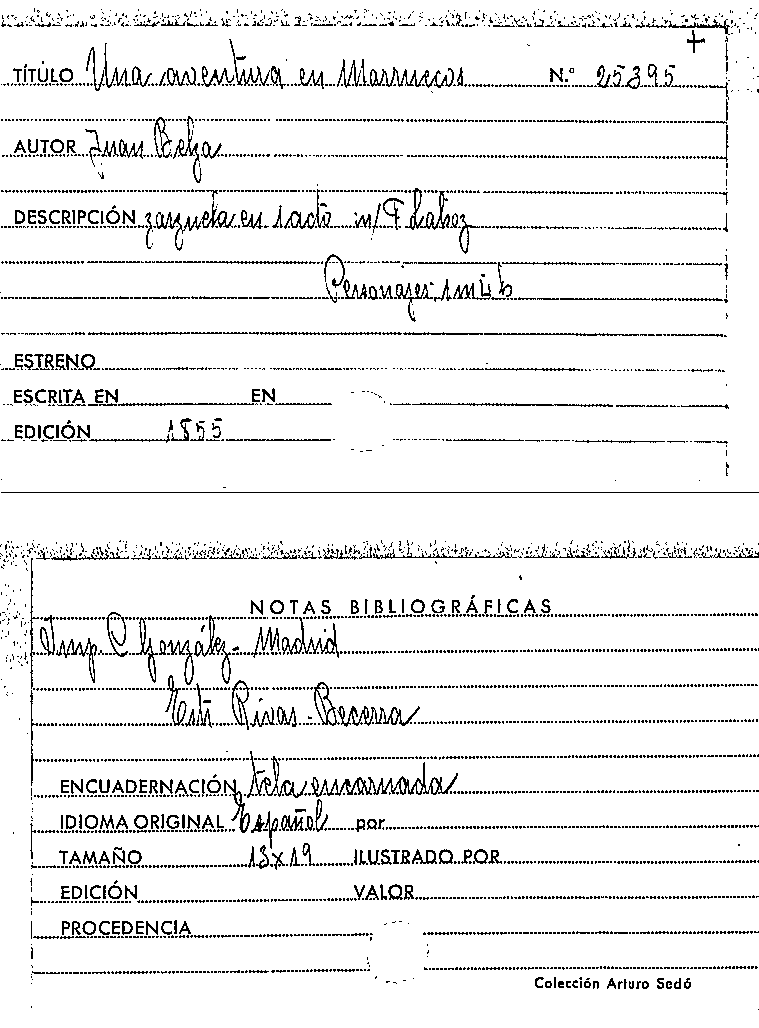 +
TÍTULO Una aventura en Marruecos N.º 25395
AUTOR Juan Belza
DESCRIPCIÓN zarzuela en 1 acto m/ F Lahoz
Personajes:
ESTRENO
ESCRITA EN EN
EDICIÓN 1855
NOTAS BIBLIOGRÁFICAS
Imp. C González - Madrid
Rivas - Becerra
ENCUADERNACIÓN tela encarnada
IDIOMA ORIGINAL Español por
TAMAÑO 13x19 ILUSTRADO POR
EDICIÓN VALOR
PROCEDENCIA
Colección Arturo Sedó